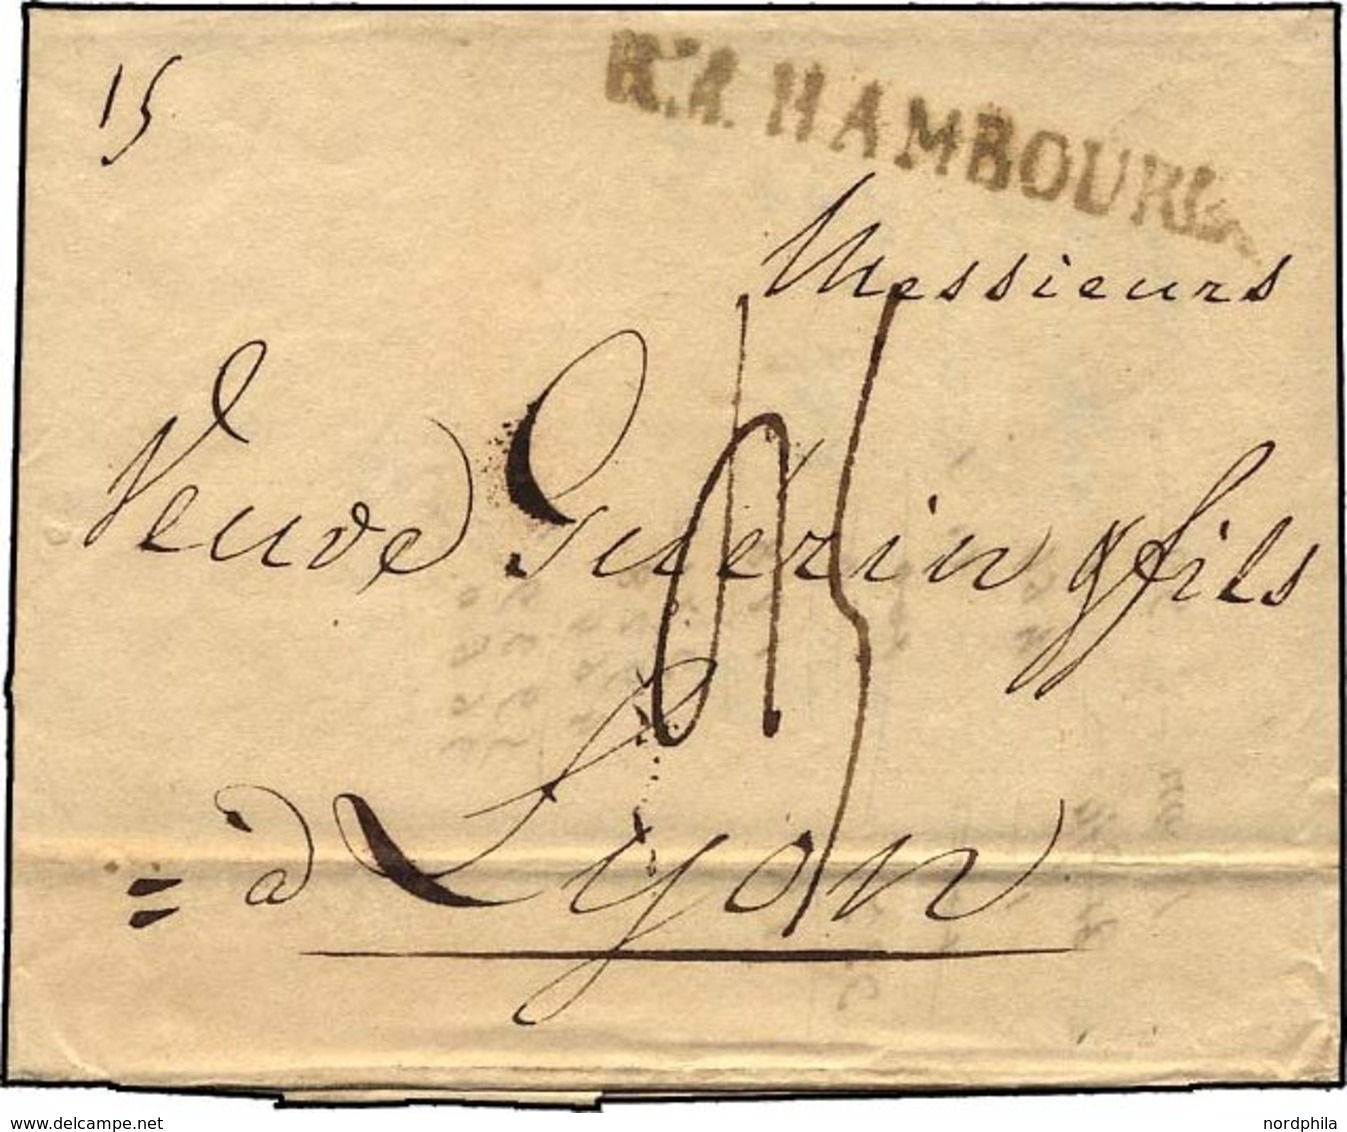 15
R.4. HAMBOURG.
Messieurs
Veuve Guérin & fils
= à Lyon
www.delcampe.net
nordphila